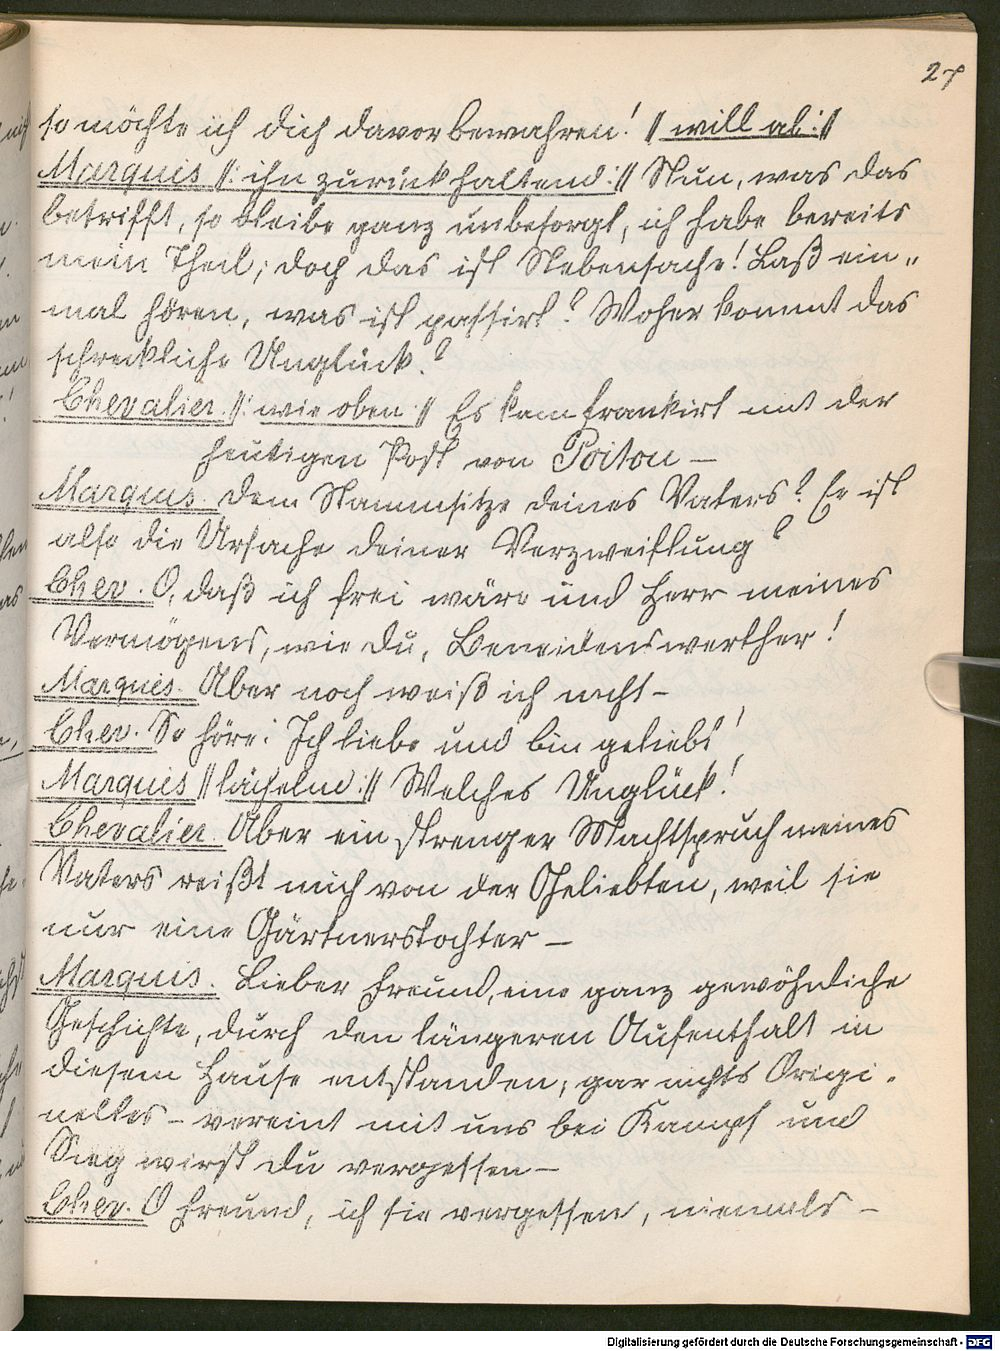 27
so möchte ich dich davor bewahren! //: will ab ://
Marquis //: ihn zurückhaltend :// Nun, was das
betrifft, so bleibe ganz unbesorgt, ich habe bereits
mein Theil; doch das ist Nebensache! Laß ein„
mal hören, was ist passirt? Woher kommt das
schreckliche Unglück?
Chevalier. //: wie oben :// Es kam frankirt mit der
heutigen Post von Poitou —
Marquis. Dem Stammsitze deines Vaters? Er ist
also die Ursache deiner Verzweiflung?
Chev. O, daß ich frei wäre und Herr meines
Vermögens, wie du, Beneidenswerther!
Marquis. Aber noch weiß ich nicht —
Chev. So höre: Ich liebe und bin geliebt!
Marquis //: lächelnd :// Welches Unglück!
Chevalier. Aber ein strenger Machtspruch meines
Vaters reißt mich von der Geliebten, weil sie
nur eine Gärtnerstochter —
Marquis. Lieber Freund, eine ganz gewöhnliche
Geschichte, durch den längeren Aufenthalt in
diesem Hause entstanden; gar nichts Origi„
nelles — vereint mit uns bei Kampf und
Sieg wirst du vergessen —
Chev. O Freund, ich sie vergessen, niemals —
Digitalisierung gefördert durch die Deutsche Forschungsgemeinschaft - DFG